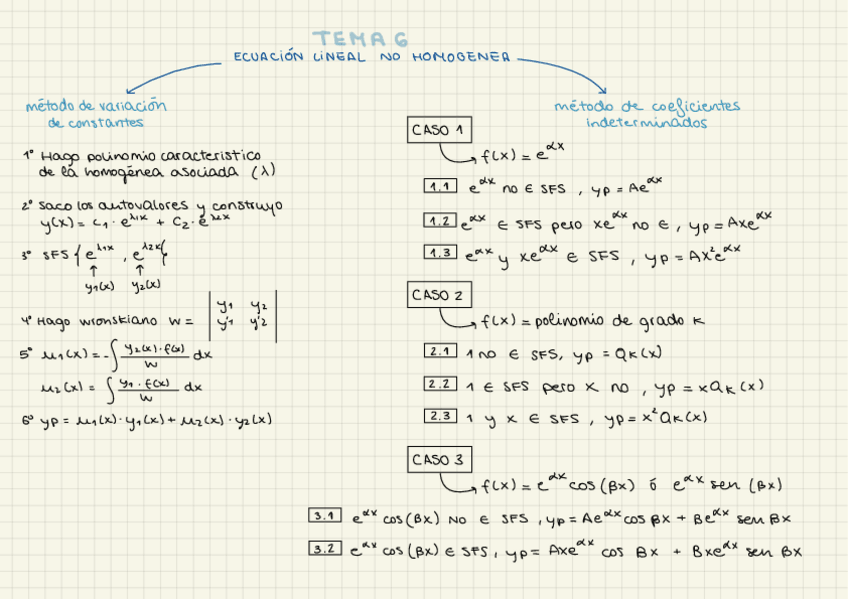 TEMA 6
ECUACIÓN LINEAL NO HOMOGENEA
método de variación
de constantes
1º Hago polinomio caracteristico
de la homogénea asociada (λ)
2º saco los autovalores y construyo
y(x) = c₁ · e^λ₁x + C₂ · e^λ₂x
3º SFS { e^λ₁x , e^λ₂x }
↑ ↑
y₁(x) y₂(x)
4º Hago wronskiano W = | y₁ y₂ |
| y'₁ y'₂ |
5º μ₁(x) = -∫ y₂(x)·f(x) / W dx
μ₂(x) = ∫ y₁·f(x) / W dx
6º yp = μ₁(x)·y₁(x) + μ₂(x)·y₂(x)
método de coeficientes
indeterminados
CASO 1
f(x) = e^αx
1.1 e^αx no ∈ SFS , yp = Ae^αx
1.2 e^αx ∈ SFS pero xe^αx no ∈ , yp = Axe^αx
1.3 e^αx y xe^αx ∈ SFS , yp = Ax²e^αx
CASO 2
f(x) = polinomio de grado k
2.1 1 no ∈ SFS, yp = Qk(x)
2.2 1 ∈ SFS pero x no , yp = xQk(x)
2.3 1 y x ∈ SFS , yp = x²Qk(x)
CASO 3
f(x) = e^αx cos(βx) ó e^αx sen(βx)
3.1 e^αx cos(βx) NO ∈ SFS , yp = Ae^αx cos βx + Be^αx sen βx
3.2 e^αx cos(βx) ∈ SFS , yp = Axe^αx cos βx + Bxe^αx sen βx